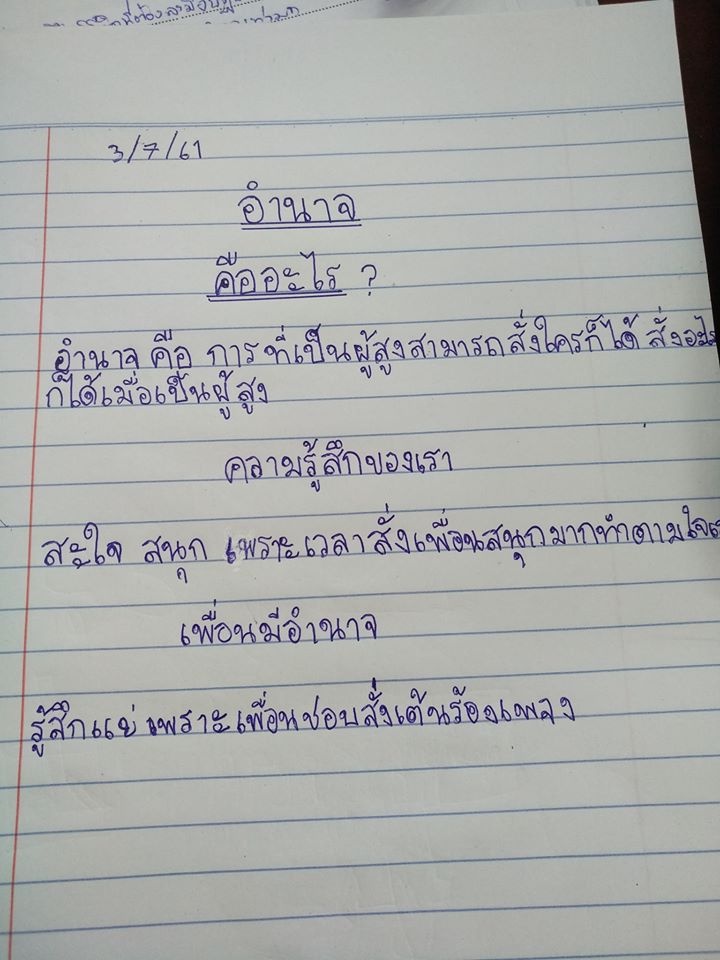 3/7/61
อำนาจ
คืออะไร ?
อำนาจ คือ การที่เป็นผู้สูงสามารถสั่งใครก็ได้ สั่ง
ก็ได้เมื่อเป็นผู้สูง
ความรู้สึกของเรา
สะใจ สนุก เพราะเวลาสั่งเพื่อนสนุกมากทำตามใจ
เพื่อนมีอำนาจ
รู้สึกแย่ เพราะเพื่อนชอบสั่งเต้นร้องเพลง